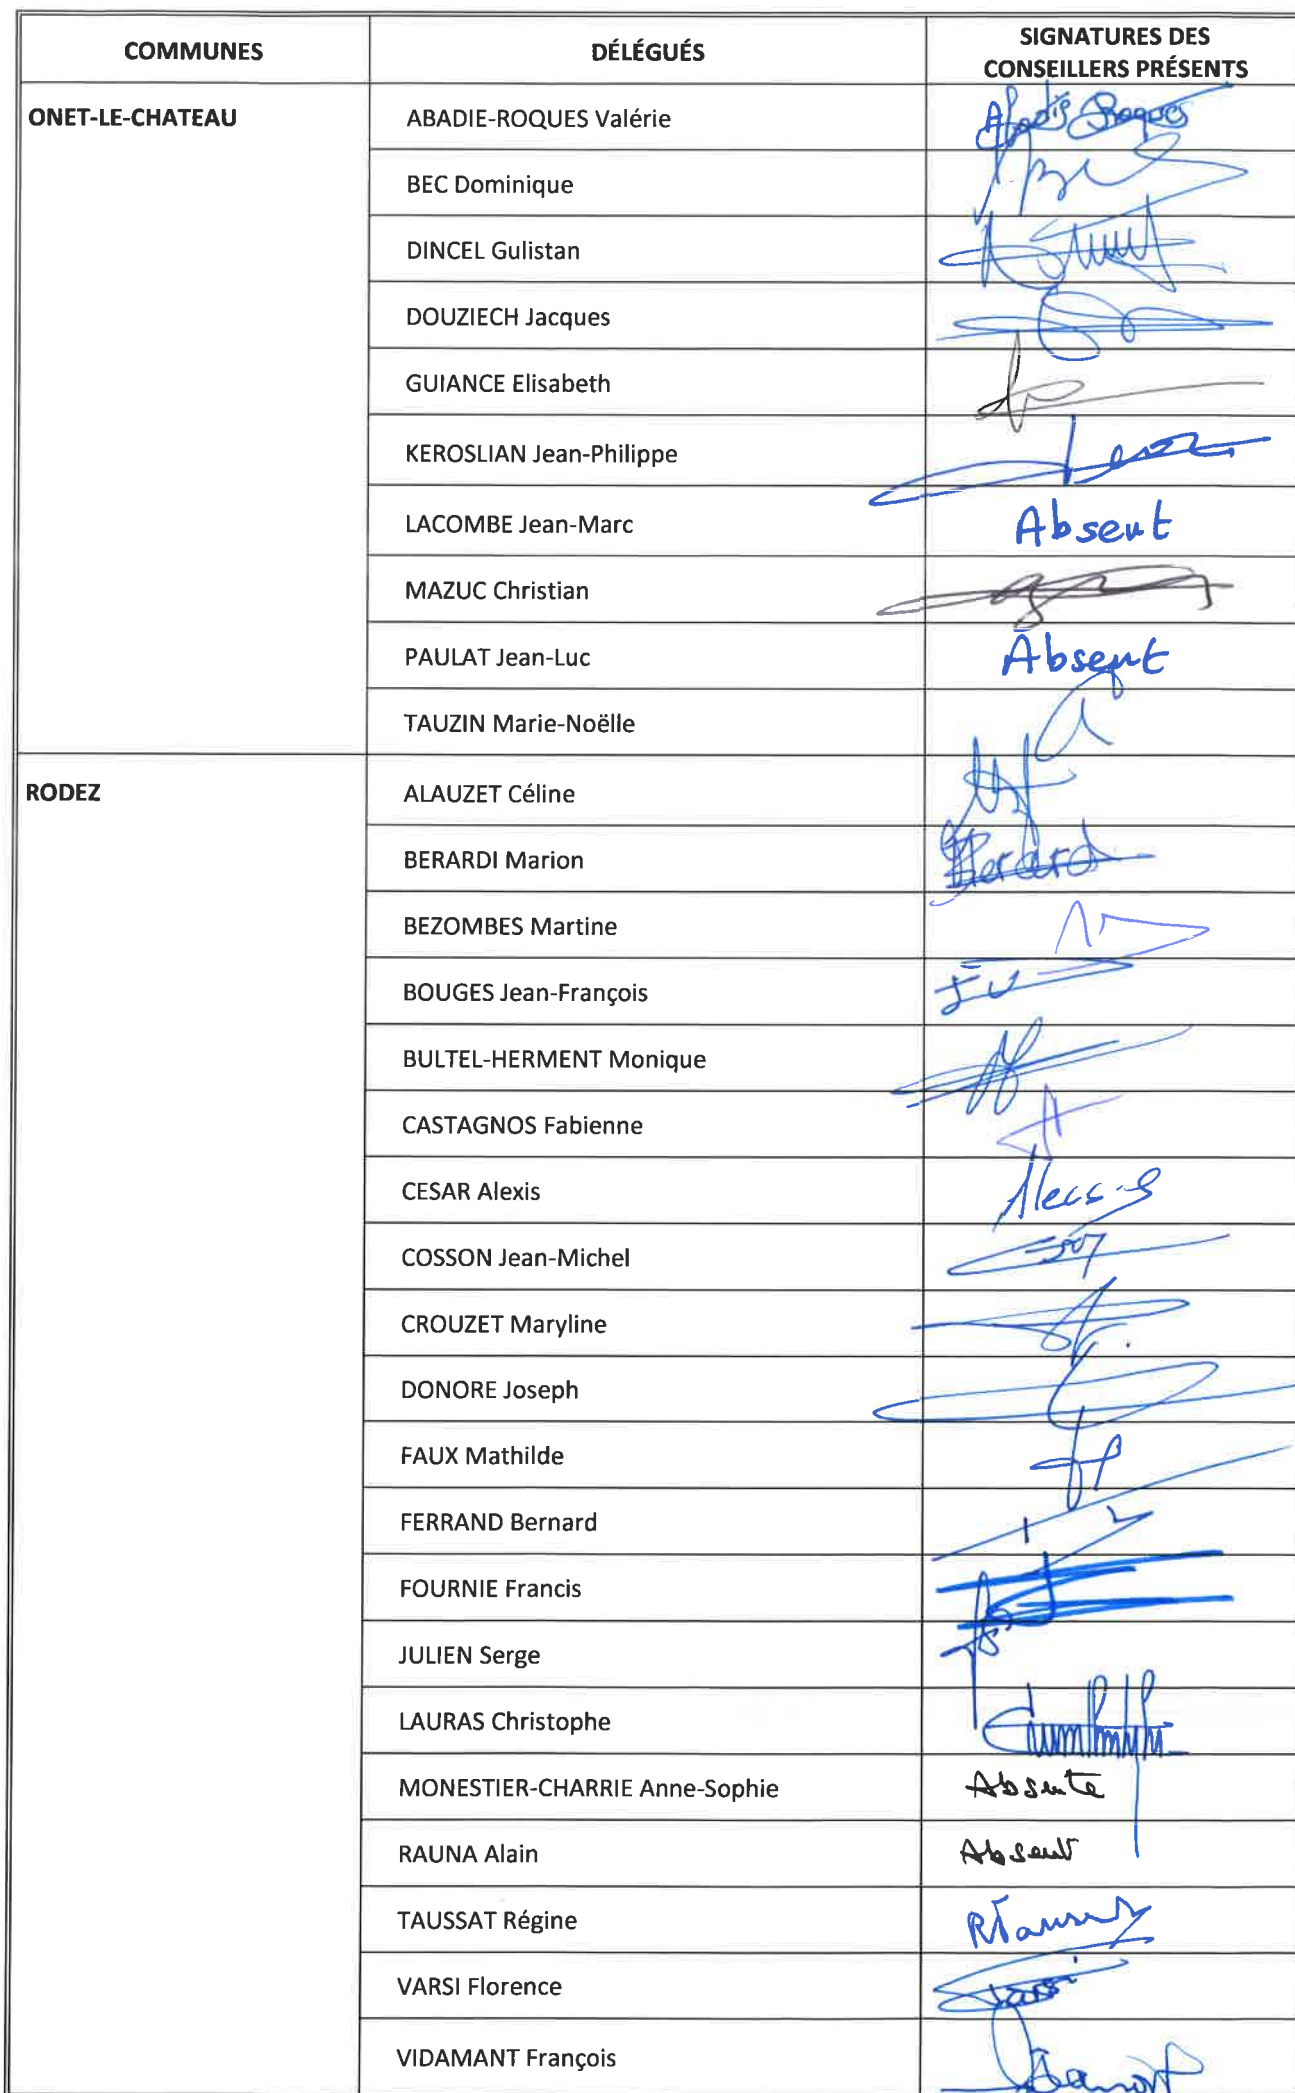 COMMUNES DÉLÉGUÉS SIGNATURES DES
CONSEILLERS PRÉSENTS
ONET-LE-CHATEAU ABADIE-ROQUES Valérie Abadie Roques
BEC Dominique
DINCEL Gulistan
DOUZIECH Jacques
GUIANCE Elisabeth
KEROSLIAN Jean-Philippe
LACOMBE Jean-Marc Absent
MAZUC Christian
PAULAT Jean-Luc Absent
TAUZIN Marie-Noëlle
RODEZ ALAUZET Céline
BERARDI Marion
BEZOMBES Martine
BOUGES Jean-François
BULTEL-HERMENT Monique
CASTAGNOS Fabienne
CESAR Alexis
COSSON Jean-Michel
CROUZET Maryline
DONORE Joseph
FAUX Mathilde
FERRAND Bernard
FOURNIE Francis
JULIEN Serge
LAURAS Christophe
MONESTIER-CHARRIE Anne-Sophie Absente
RAUNA Alain Absent
TAUSSAT Régine
VARSI Florence Varsi
VIDAMANT François